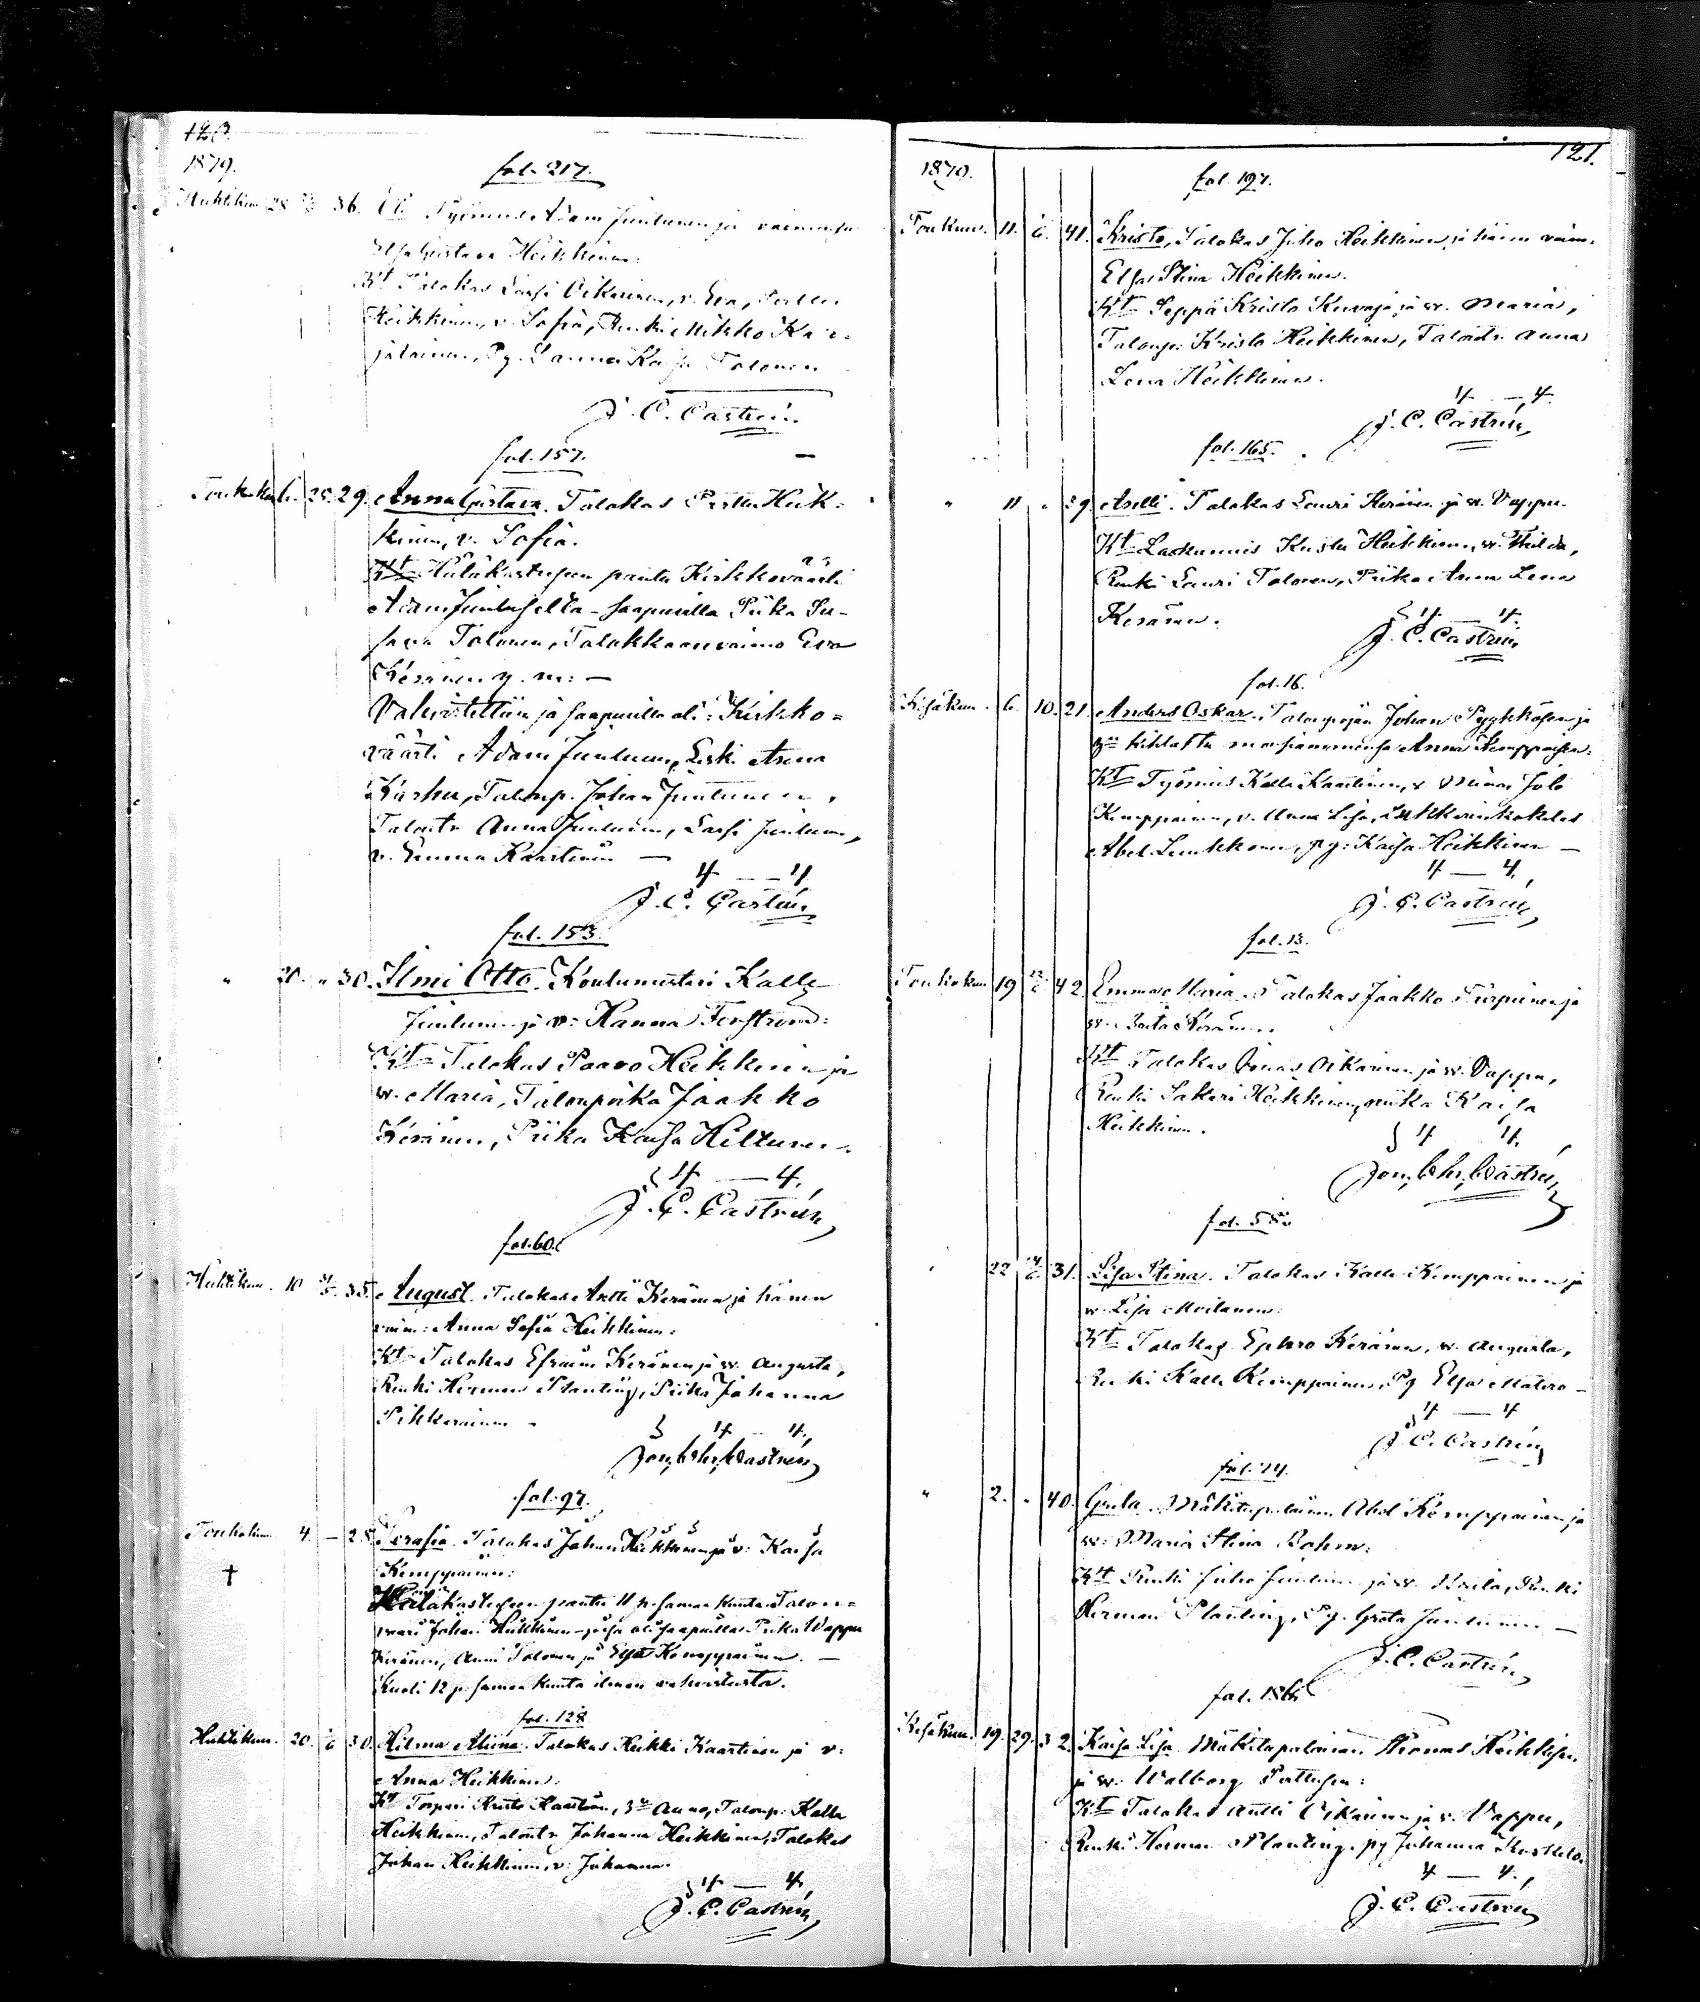 120.
1879.
fol. 217.
Huhtikuu 28 36. Eli Työmies Adam Juntunen ja vaimonsa
Elsa Gustava Heikkinen.
Kt Talokas Lassi Oikarinen, v. Eva,
Heikkinen, v. Sofia, Renki Mikko Kar-
jalainen, Pg. Sanna Kaisa Tolonen
J. C. Castrén
fol. 157.
Toukokuu 6. 25. 29. Anna Gustava. Talokas Pertta Heik-
kinen, v. Sofia.
Kt Hätäkasteesen pantu Kirkkoväärti
Adam Juntuselta – saapuvilla Piika Su-
sanna Tolonen, Talokkaan vaimo Eva
Keränen y. m: –
Vahvistettiin ja saapuvilla oli: Kirkko-
väärti Adam Juntunen, Leski Anna
Karhu, Talonp. Johan Juntunen,
Talontr Anna Juntunen, Lassi Juntunen,
v. Emma Kaartinen –
4 – 4
J. C. Castrén
fol. 153.
" 20. " 30. Ilmi Otto. Koulumestari Kalle
Juntunen ja v: Hanna Forsström:
Kt Talokas Paavo Heikkinen ja
w. Maria, Talonpoika Jaakko
Keränen, Piika Kaisa Hiltunen.
4 – 4.
J. C. Castrén
fol. 60.
Huhtikuu. 10 35. August. Talokas Antti Keränen ja hänen
vaim: Anna Sofia Heikkinen:
Kt Talokas Efraim Keränen ja w. Augusta,
Renki Herman Planting, Piika Johanna
Pikkarainen –
4 – 4,
Jon. Chr. Castrén
fol. 97.
Toukokuu 4 – 28. Serafia. Talokas Johan Heikkinen ja v: Kaisa
Kemppainen:
Hätäkasteesen pantu 11 p. samaa kuuta Talon-
vaari Johan Heikkinen – jossa oli saapuvilla Piika Wappu
Keränen, Anni Tolonen ja Elsa Kemppainen. –
Kuoli 12 p. samaa kuuta ilman vahvistusta.
fol. 128
Huhtikuu. 20. 6 30. Hilma Alina. Talokas Heikki Kaartinen ja v:
Anna Heikkinen:
Kt Torpari Kristo Kaartinen, Anna, Talonp. Kalle
Heikkinen, Talontr Johanna Heikkinen, Talokas
Johan Heikkinen, v. Johanna.
4 – 4,
J. C. Castrén
121.
1879.
fol. 197.
Toukuu. 11. 6. 41. Kristo, Talokas Juho Heikkinen ja hänen vaim.
Elsa Stina Heikkinen.
Kt Seppä Kristo Kuvaja ja w. Maria,
Talonp. Kristo Heikkinen, Talontr. Anna
Lena Heikkinen.
4 – 4.
J. C. Castrén
fol. 165.
" 11 " 29. Antti. Talokas Lauri Keränen ja w. Vappu.
Kt Laskumies Kusta Heikkinen, w. Hilda,
Renki Lauri Tolonen, Piika Anna Lena
Keränen.
4 – 4.
J. C. Castrén
fol. 16.
Kesäkuu. 6. 10. 21. Anders Oskar. Talonpojan Johan Pyykkösen ja
kihlattu morsiamensa Anna Kemppaisen.
Kt Työmies Kalle Kaartinen, v. Miina, Jole
Kemppainen, v. Anna Lisa,
Abel Leinkkonen, pg: Kaisa Heikkinen –
4 – 4,
J. C. Castrén
fol. 13.
Toukokuu 19 42. Emma Maria. Talokas Jaakko Turpeinen ja
w. Greta Keränen.
Kt Talokas Jonas Oikarinen ja w. Vappu,
Renki Sakari Heikkinen, piika Kaisa
Heikkinen.
4 4.
Jon. Chr. Castrén
fol. 58.
" 22 31. Lisa Stina. Talokas Kalle Kemppainen ja
w. Lisa Moilanen.
Kt Talokas Ephro Keränen, w. Augusta,
Renki Kalle Kemppainen, Pg Elsa Matero –
4 – 4
J. C. Castrén
fol. 14.
" 2. " 40. Greta. Mäkitupalainen Abel Kemppainen ja
w. Maria Stina Bohm:
Kt Renki Juho Juntunen ja w. Briita, Renki
Herman Planting, Pg. Greta Juntunen –
J. C. Castrén
fol. 186.
Kesäkuu. 19. 29. 32. Kaisa Lisa. Mäkitupalainen Thomas Heikkisen
ja w. Walborg Pertusen:
Kt Talokas Antti Oikarinen ja v. Vappu,
Renki Herman Planting, pg Johanna Karttelo.
4 – 4.,
J. C. Castrén